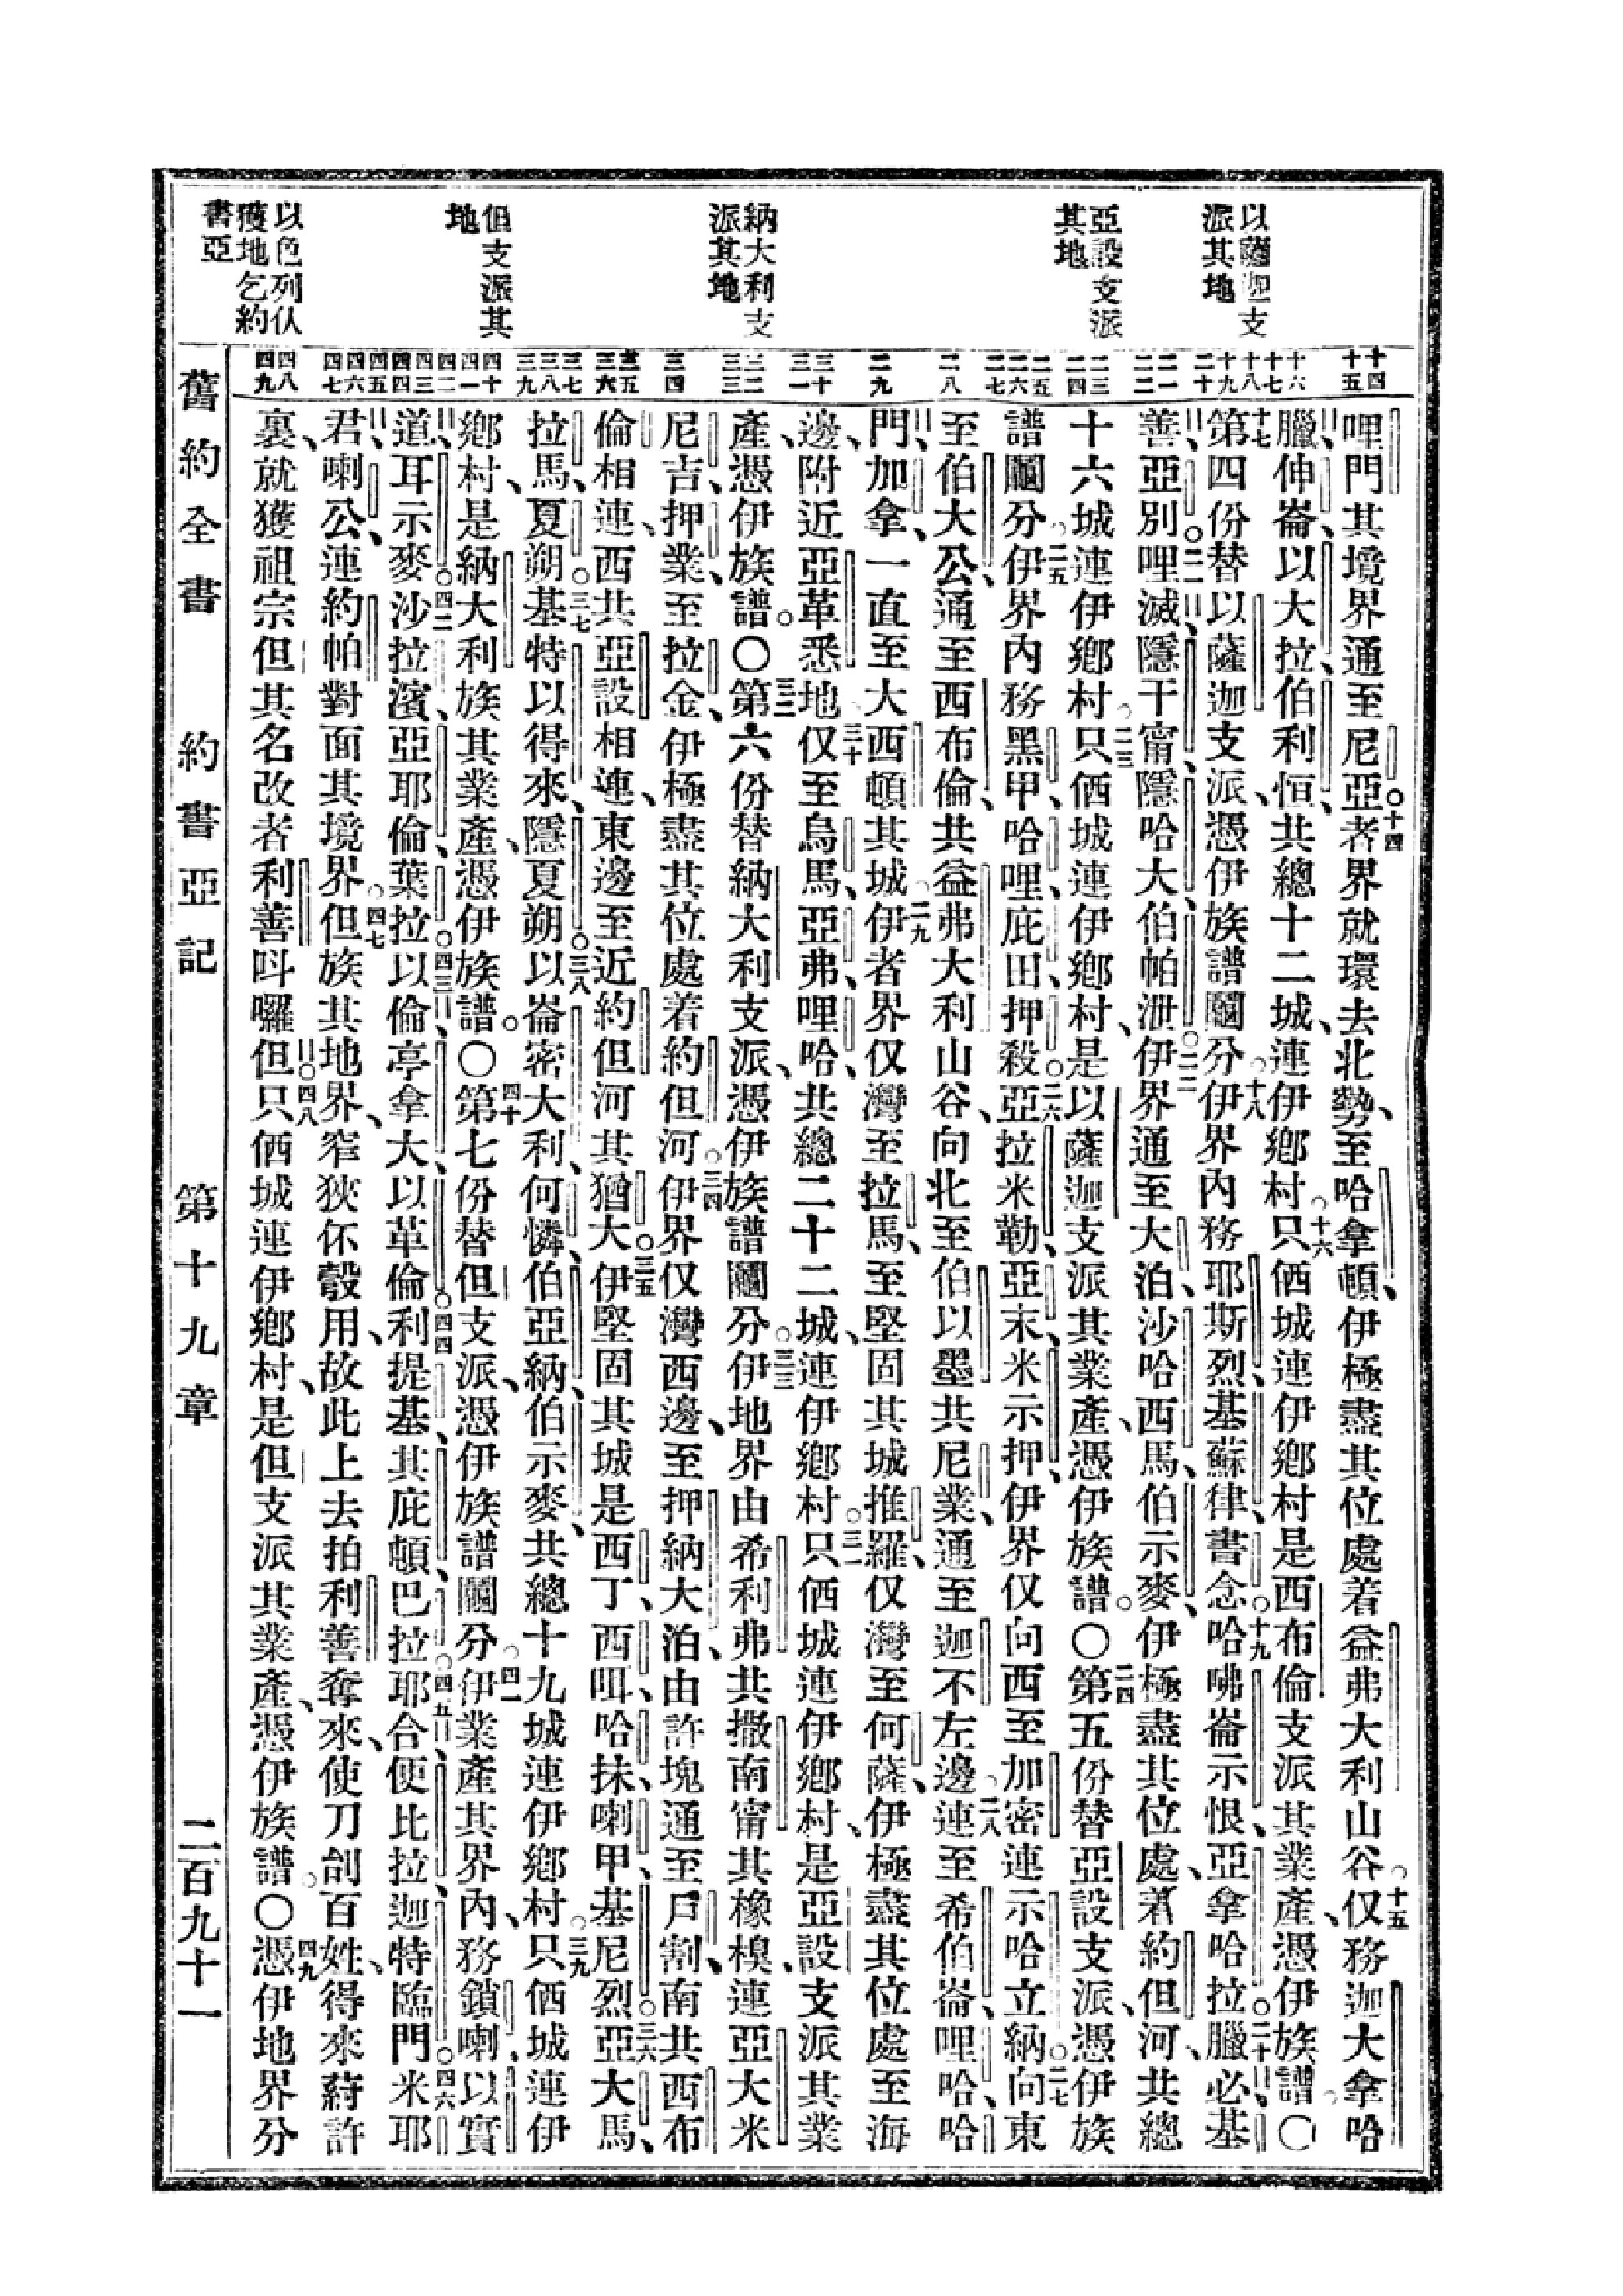 以薩迦支
派其地
亞設支派
其地
納大利支
派其地
但支派其
地
以色列仈
獲地乞約
書亞
十四
十五
十六
十七
十八
十九
二十
二一
二二
二三
二四
二五
二六
二七
二八
二九
三十
三一
三二
三三
三四
三五
三六
三七
三八
三九
四十
四一
四二
四三
四四
四五
四六
四七
四八
四九
哩門其境界通至尼亞。十四者界就環去北勢、至哈拿頓、伊極盡其位處着益弗大利山谷。十五仅務迦大拿哈
臘、伸崙、以大拉、伯利恒、共總十二城、連伊鄉村。十六只価城連伊鄉村是西布倫支派其業產、憑伊族譜。〇
十七第四份替以薩迦支派、憑伊族譜鬮分。十八伊界內務耶斯烈、基蘇律、書念、十九哈咈崙、示恨、亞拿哈拉、二十臘必、基
善、亞別、二一哩滅、隱干甯、隱哈大、伯帕泄。二二伊界通至大泊、沙哈西馬、伯示麥、伊極盡其位處、着約但河、共總
十六城連伊鄉村。二三只価城連伊鄉村、是以薩迦支派其業產、憑伊族譜。〇二四第五份替亞設支派、憑伊族
譜鬮分。二五伊界內務黑甲、哈哩、庇田、押殺、二六亞拉米勒、亞末、米示押、伊界仅向西至加密連示哈立納。二七向東
至伯大公、通至西布倫、共益弗大利山谷、向北至伯以墨共尼業、通至迦不左邊。二八連至希伯崙、哩哈、哈
門、加拿、一直至大西頓其城。二九伊者界仅灣至拉馬、至堅固其城推羅、仅灣至何薩、伊極盡其位處至海
邊、附近亞革悉地。三十仅至烏馬、亞弗、哩哈、共總二十二城、連伊鄉村。三一只価城連伊鄉村、是亞設支派其業
產、憑伊族譜。〇三二第六份替納大利支派、憑伊族譜鬮分。三三伊地界由希利弗、共撒南甯其橡樹、連亞大米
尼吉、押業、至拉金、伊極盡其位處着約但河。三四伊界仅灣西邊、至押納大泊、由許塊通至戶割、南共西布
倫相連、西共亞設相連、東邊至近約但河其猶大。三五伊堅固其城是西丁、西咡、哈抹、喇甲、基尼烈、三六亞大馬、
拉馬、夏朔、三七基特、以得來、隱夏朔、三八以崙、密大利、何憐、伯亞納、伯示麥、共總十九城連伊鄉村。三九只価城連伊
鄉村、是納大利族其業產、憑伊族譜。〇四十第七份替但支派、憑伊族譜鬮分。四一伊業產其界內、務鎖喇、以實
道、耳示麥、四二沙拉濱、亞耶倫、葉拉、四三以倫、亭拿大、以革倫、四四利提基、其庇頓、巴拉、四五耶合、便比拉、迦特臨門、四六米耶
君、喇公、連約帕對面其境界。四七但族其地界、窄狹伓彀用、故此上去拍利善奪來、使刀刣百姓、得來蒔許
裏、就獲祖宗但其名改者利善呌囉但。四八只価城連伊鄉村、是但支派其業產、憑伊族譜。〇四九憑伊地界分
舊約全書　約書亞記　第十九章　二百九十一